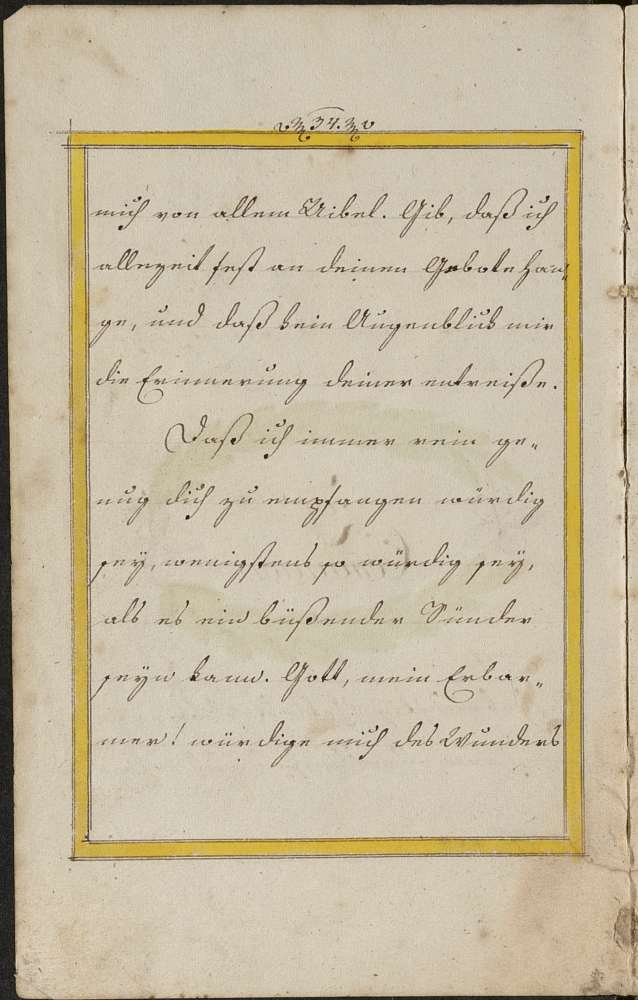 34.
mich von allem Uibel. Gib, daß ich
allezeit fest an deinen Gebote han-
ge, und daß kein Augenblick mir
die Erinnerung deiner entreiße.
Daß ich immer rein ge-
nug dich zu empfangen würdig
sey, wenigstens so würdig sey,
als es ein büßender Sünder
seyn kann. Gott, mein Erbar-
mer! würdige mich des Wunders